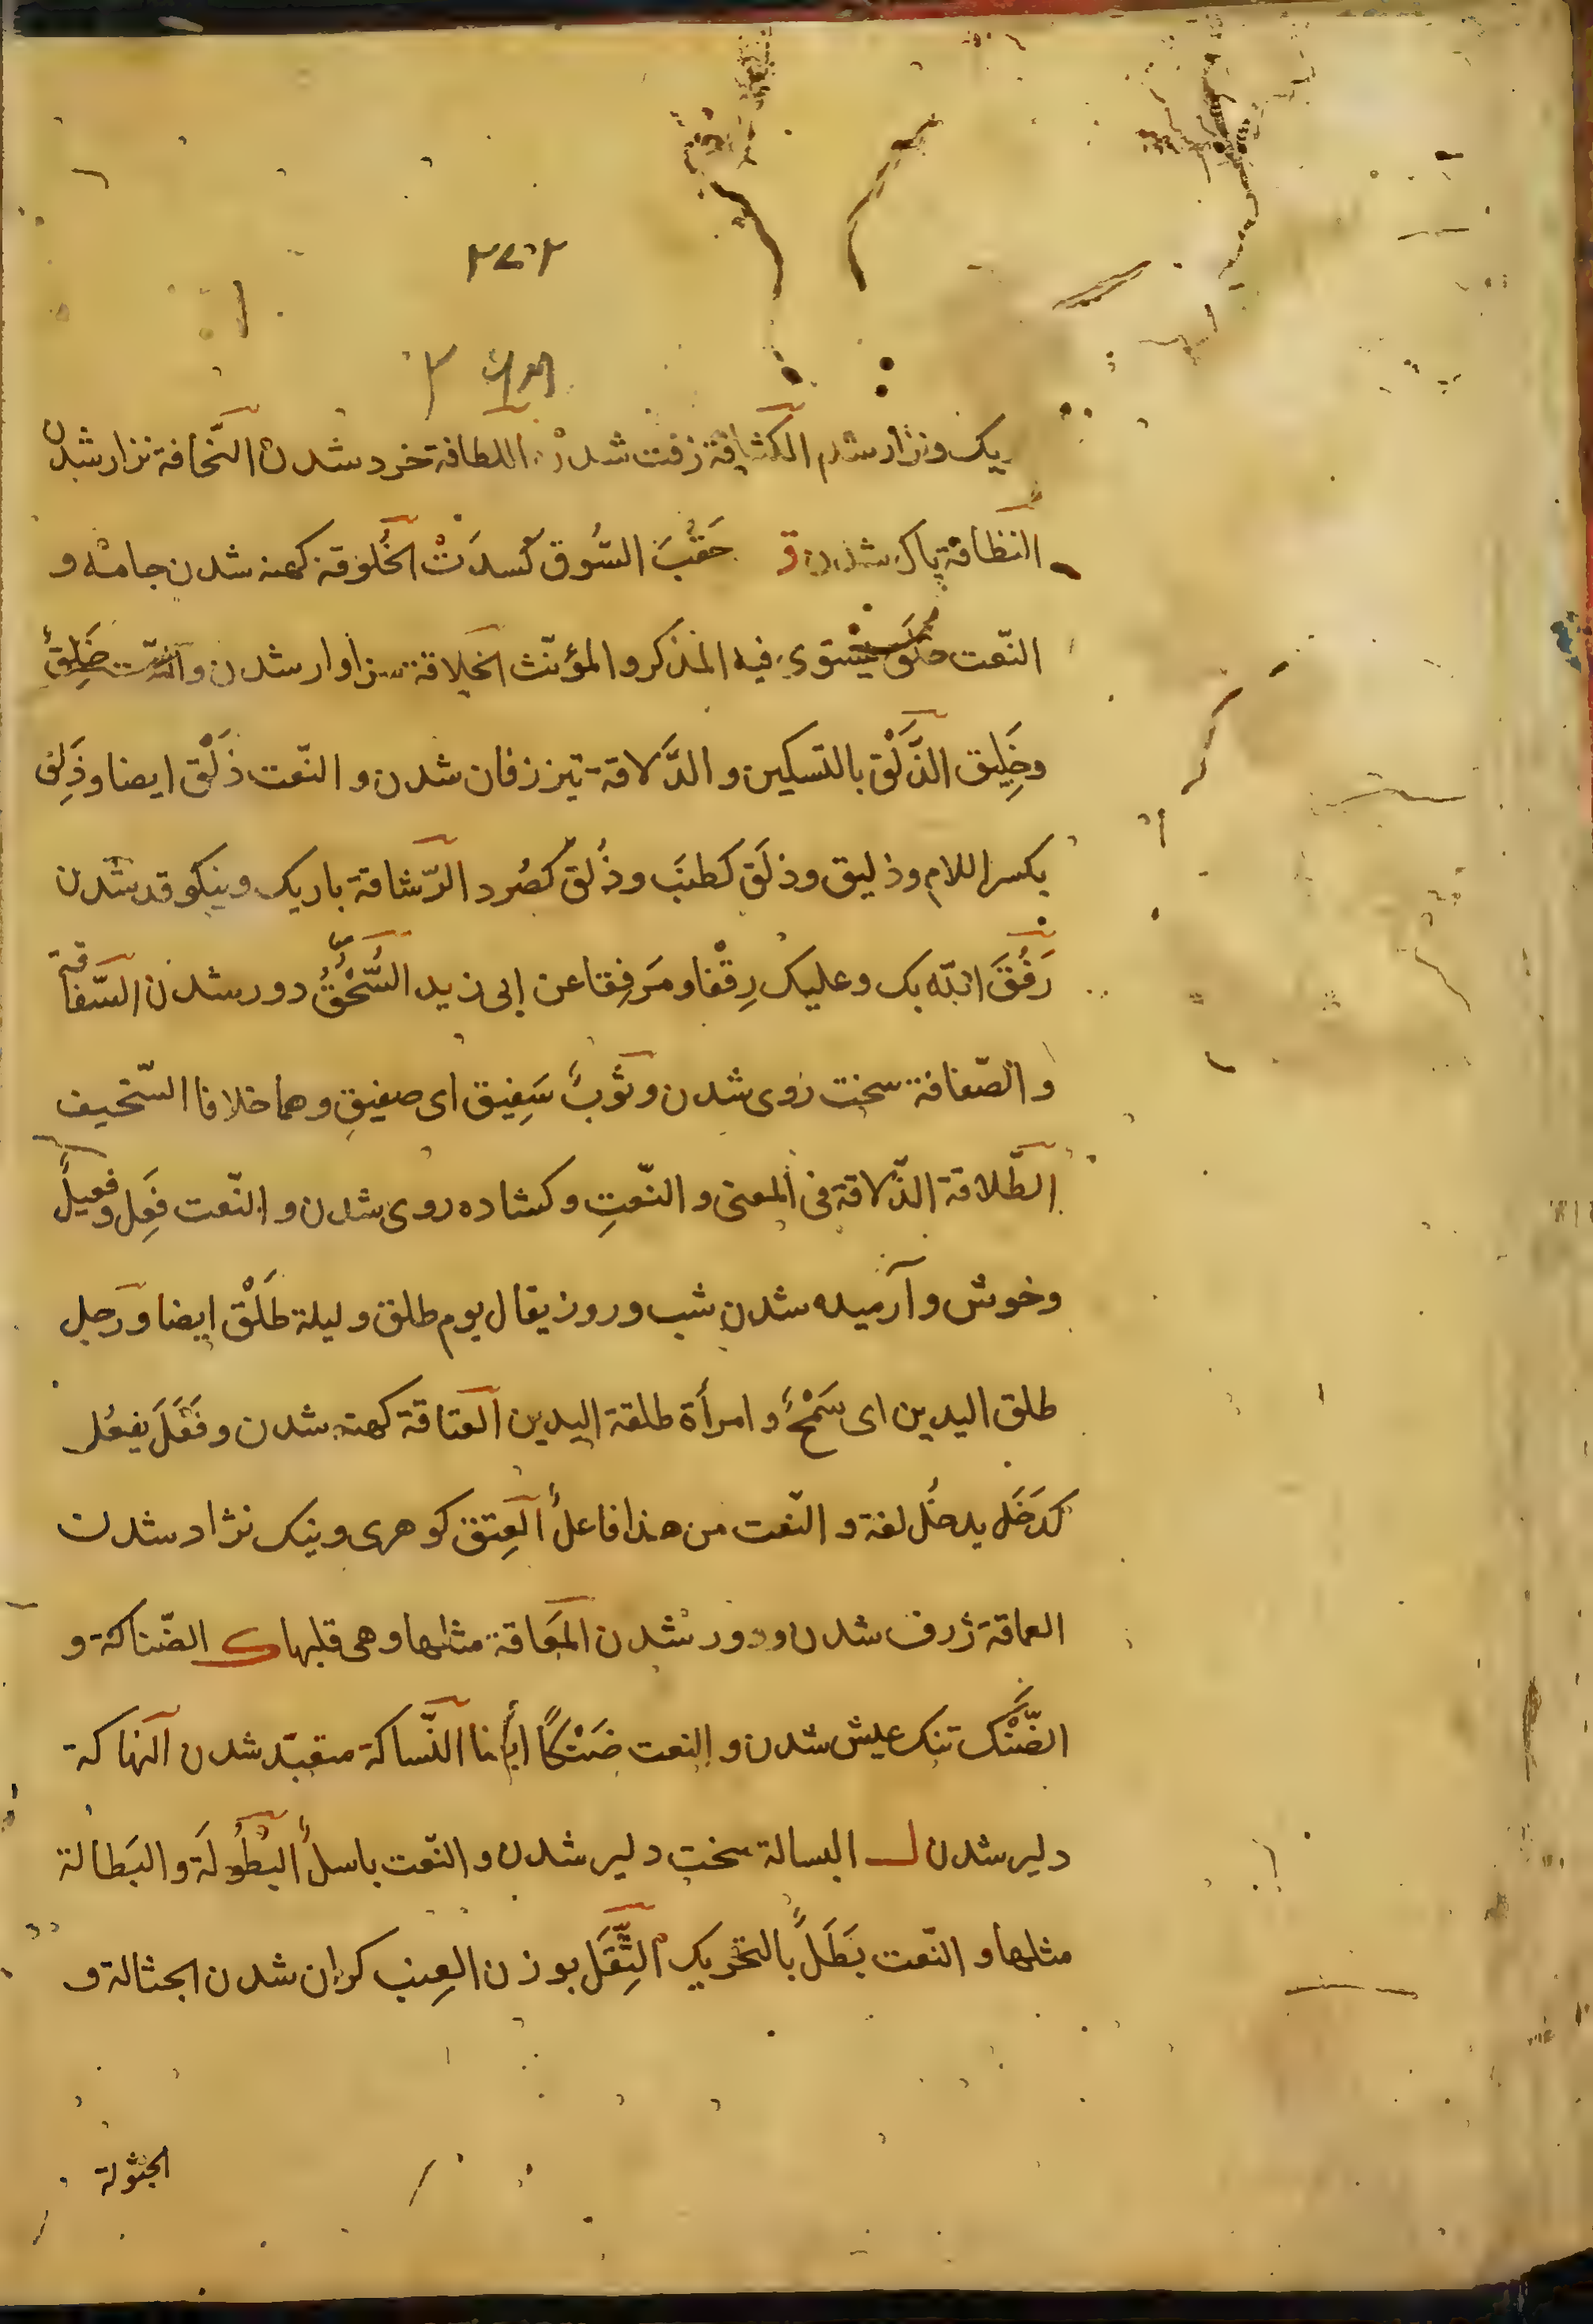 ۲۷۰۲
یک ونزار شدم الکثافة زفت شدن اللطافة خرد شدن النّحافة نزار شدن
النظافة پاک شدن ق حَقُبَ السُّوق کَسدَتْ الخُلوقة کهنه شدن جامه و
النّعت خلق یستوی فیه المذکر والمؤنّث الخلاقة سزاوار شدن والنّعت خَلِقٌ
وخَلِیق الذَّلْق بالتسکین و الذَّلاقة تیز زفان شدن و النّعت ذَلْق ایضا وذَلِق
بکسر اللام وذلیق وذلَق کطنَب وذُلق کصُرد الرّشاقة باریک و نیکو قد شدن
رَفُقَ اللّه بک وعلیک رِفْقا ومَرفِقا عن ابی زید السُّحْقُ دور شدن السَّفاقة
والصّفاقة سخت روی شدن و ثَوبٌ سَفِیق ای صفیقٍ وهما خلافا السّخیف
الطّلاقة الذّلاقة فی المعنی و النّعتِ و کشاده روی شدن و النّعت فَعِل وفعیلٌ
وخوش وآرمیده شدن شب و روز یقال یوم طلق و لیلة طَلْق ایضا ورجل
طلق الیدین ای سَمْحٌ و امرأة طلقة الیدین العتاقة کهنه شدن و فَعَلَ یفعُل
کدَخَل یدخُل لغة و النّعت من هذا فاعلٌ العِتق کوهری و نیک نژاد شدن
العماقة ژرف شدن و دور شدن المَعَاقة مثلها وهی قلبها ک الضّناکة و
الضَّنْک تنک عیش شدن و النعت ضَنْکٌ ایضا النّساکة متعبّد شدن النهاکة
دلیر شدن ل البسالة سخت دلیر شدن و النّعت باسلٌ البُطُولَة و البَطالة
مثلها و النّعت بَطَلٌ بالتحریک الثِّقَل بوزن العِنب کران شدن الجثالة و
الجثولة